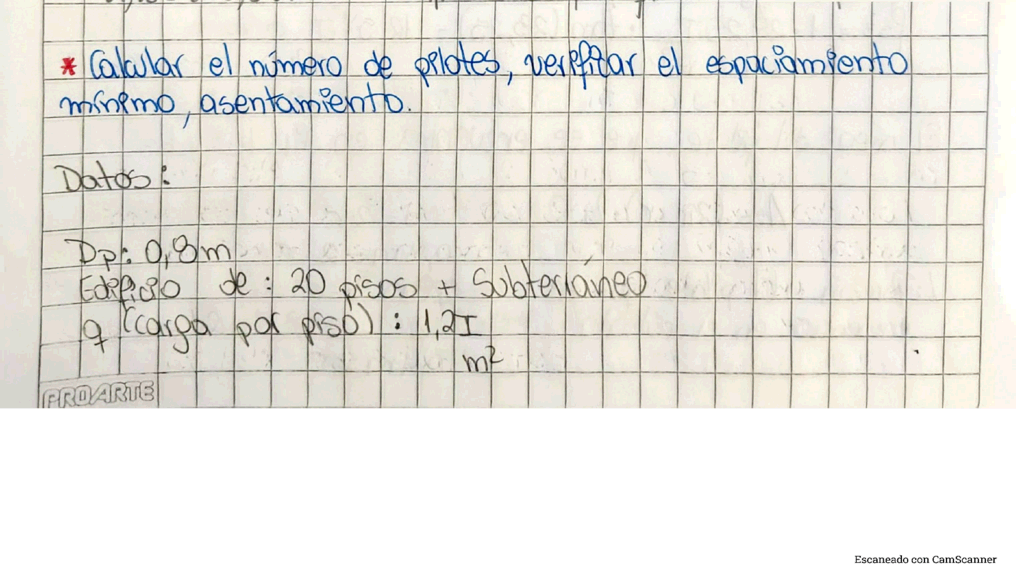 * Calcular el número de pilotes, verificar el espaciamiento
mínimo, asentamiento.
Datos:
Dp: 0,8m
Edificio de: 20 pisos + Subterráneo
q (carga por piso): 1,2T
m²
PROARTE
Escaneado con CamScanner